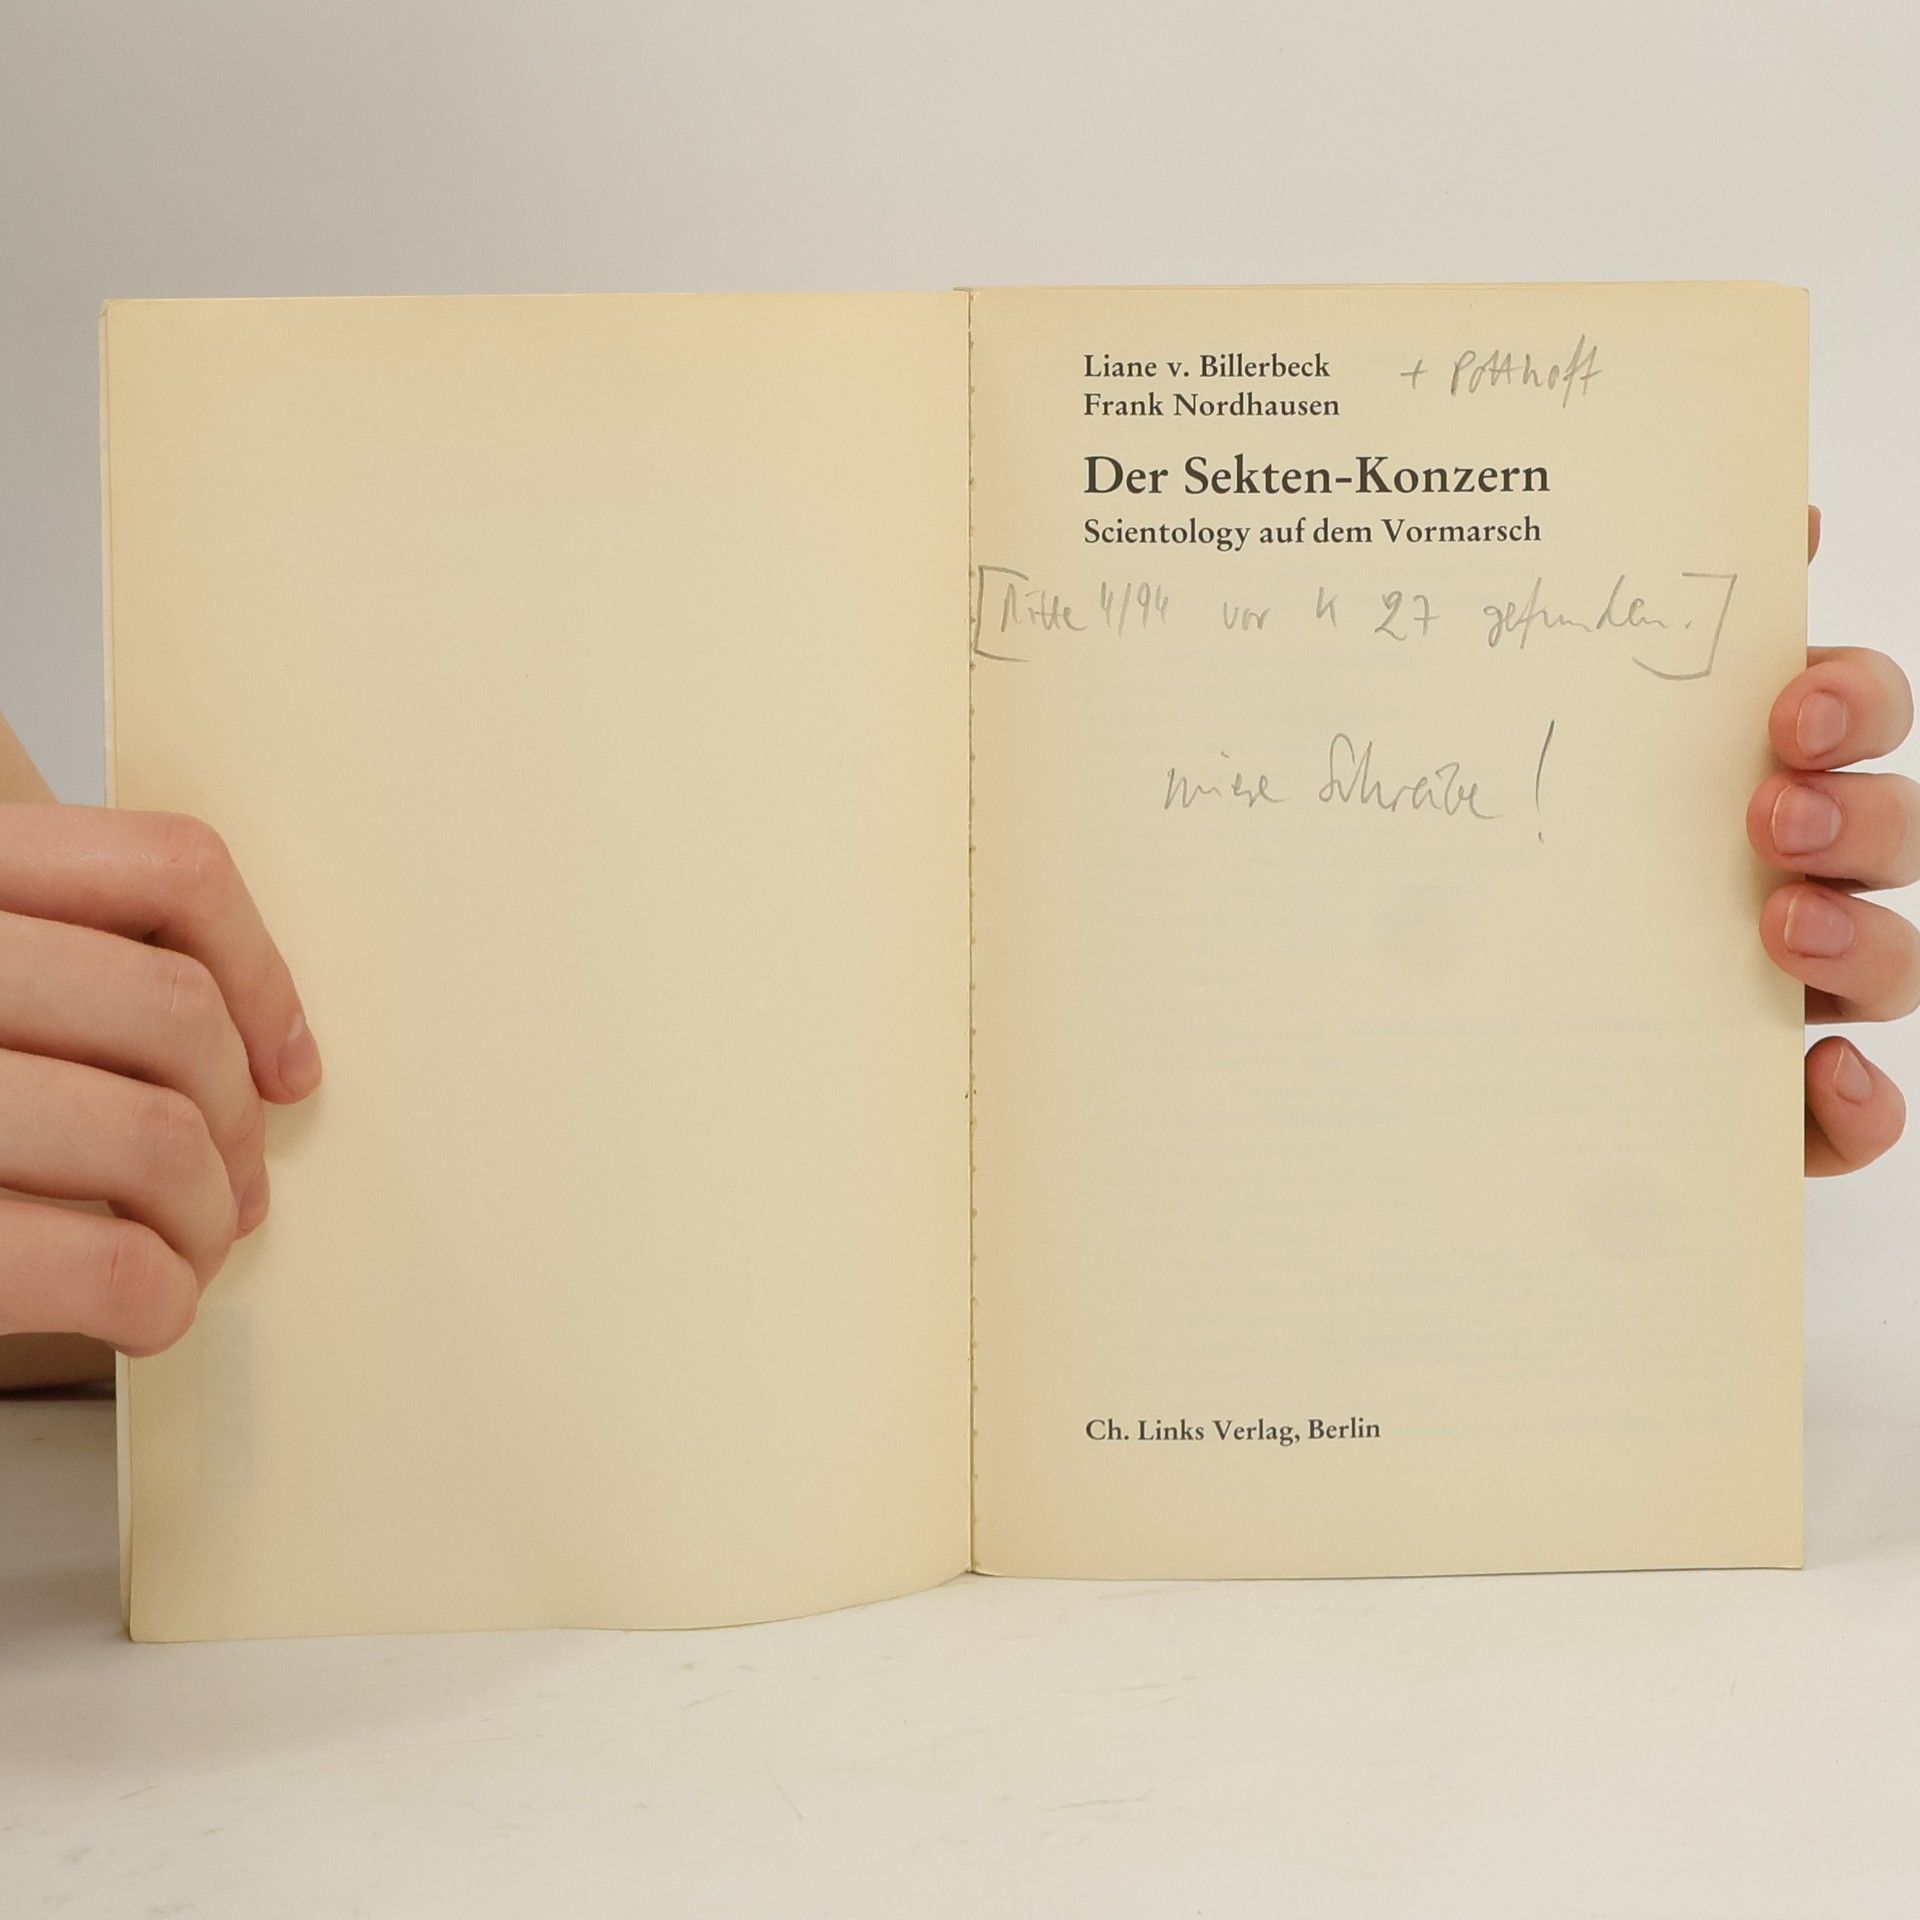 Liane v. Billerbeck + Potthoff
Frank Nordhausen
Der Sekten-Konzern
Scientology auf dem Vormarsch
[Mitte 4/94 vor K 27 gefunden.]
miese Schreibe!
Ch. Links Verlag, Berlin